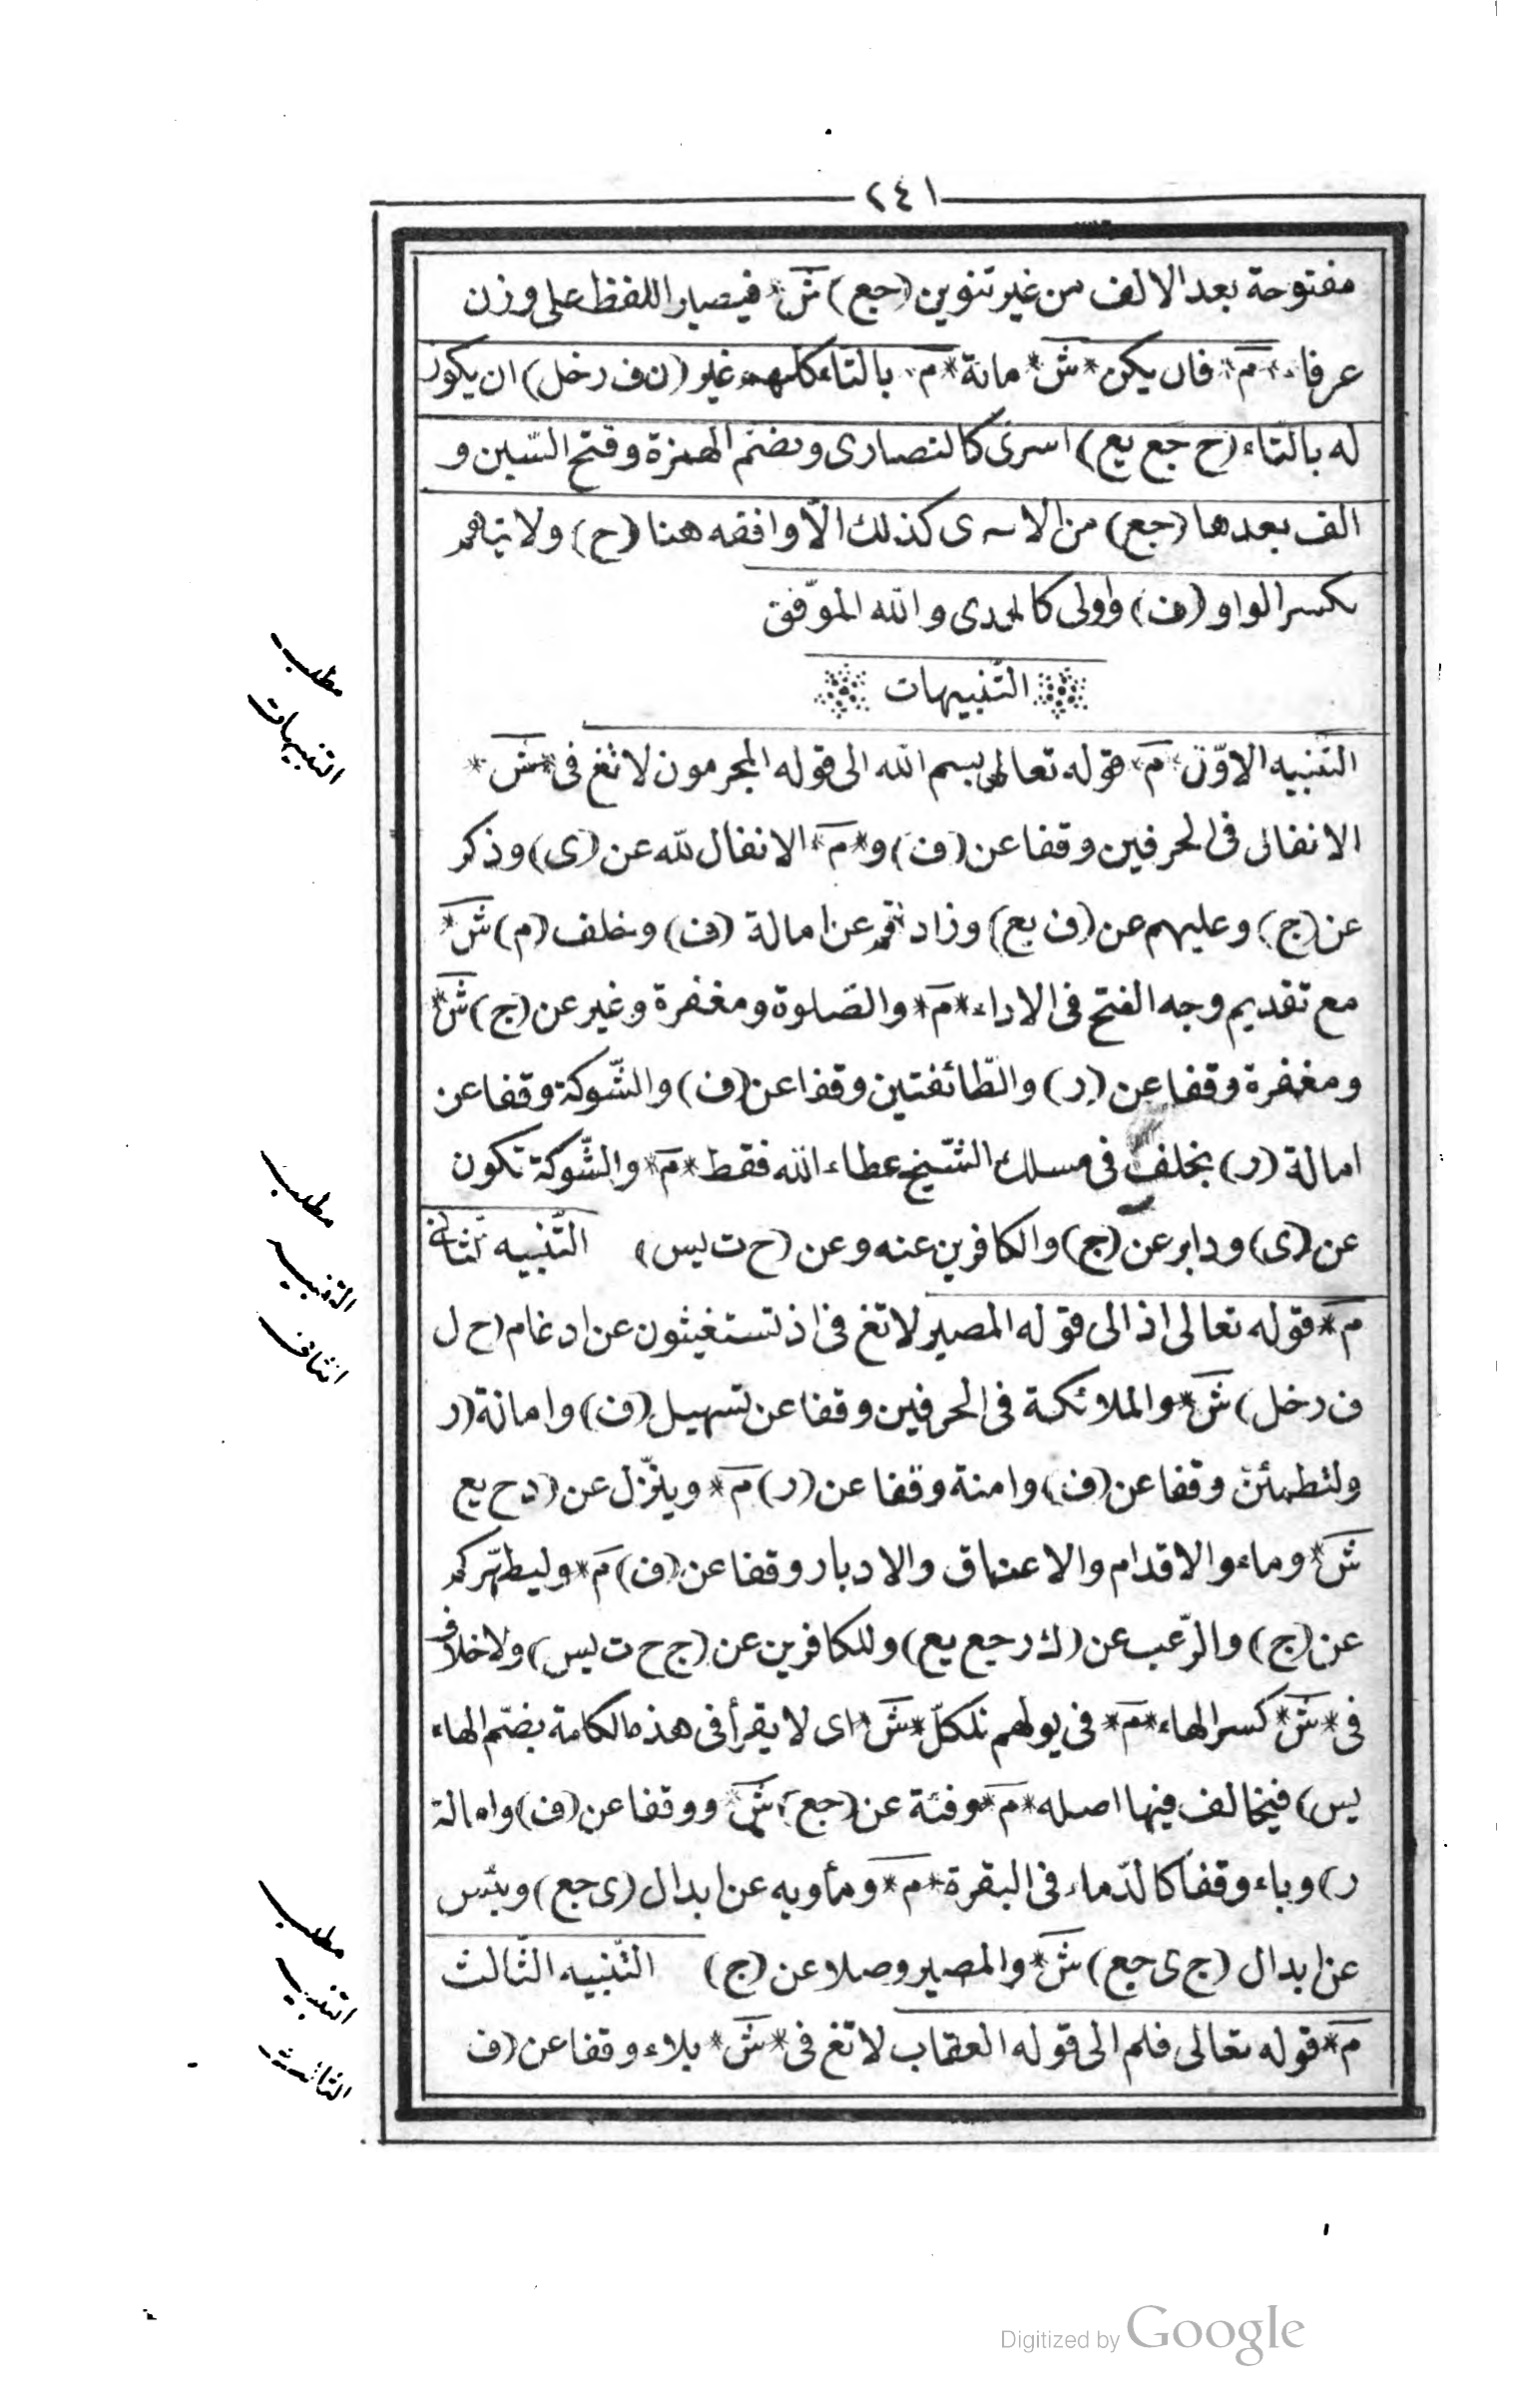 ٢٤١
مفتوحة بعد الالف من غير تنوين (جع) شَ* فيصير اللفظ على وزن
عرفاء *مَ* فان يكن *شَ* مائة *مَ* بالتاء كلهم غير (ن ف ر خل) ان يكون
له بالتّاء (ح جع يع) اسرى كالنصارى وبضم الهمزة وفتح السّين و
الف بعدها (جع) من الاسرى كذلك الّا وافقه هنا (ح) ولايتهم
بكسر الواو (ف) واولى كالهدى والله الموّفق
التّنبيهات
التّنبيه الاوّل *مَ* قوله تعالى بسم الله الى قوله المجرمون لا تغ فى *شَ*
الانفال فى الحرفين وقفا عن (ف) و*مَ* الانفال لله عن (ى) وذكر
عن (ج) وعليهم عن (ف يع) وزادتهم عن امالة (ف) وخلف (م) شَ*
مع تقديم وجه الفتح فى الاداء *مَ* والصّلوة ومغفرة وغير عن (ج) شَ*
ومغفرة وقفا عن (ر) والطّائفتين وقفا عن (ف) والشّوكة وقفا عن
امالة (ر) بخلف فى مسلك الشّيخ عطاء الله فقط *مَ* والشّوكة تكون
عن (ى) ودابر عن (ج) والكافرين عنه وعن (ح ت يس) التّنبيه الثّانى
مَ* قوله تعالى اذ الى قوله المصير لا تغ فى اذ تستغيثون عن ادغام (ح ل
ف ر خل) شَ* والملائكة فى الحرفين وقفا عن تسهيل (ف) وامالة (ر
ولتطمئنّ وقفا عن (ف) وامنة وقفا عن (ر) مَ* وينزّل عن (د ح يع
شَ* وماء والاقدام والاعناق والادبار وقفا عن (ف) مَ* وليطهّركم
عن (ج) والرّعب عن (ك ر جع يع) وللكافرين عن (ج ح ت يس) ولا خلاف
فى *شَ* كسر الهاء *مَ* فى يولهم لكلّ *شَ* اى لا يقرأ فى هذه الكلمة بضّم الهاء
يس) فيخالف فيها اصله *مَ* وفئة عن (جع) شَ* ووقفا عن (ف) وامالة
ر) وباء وقفا كالدّماء فى البقرة *مَ* ومأويه عن ابدال (ى جع) وبئس
عن ابدال (ج ى جع) شَ* والمصير وصلا عن (ج) التّنبيه الثّالث
مَ* قوله تعالى فلم الى قوله العقاب لا تغ فى *شَ* بلاء وقفا عن (ف
مطلب
التنبيهات
مطلب
التنبيه
الثانى
مطلب
التنبيه
الثالث
Digitized by Google